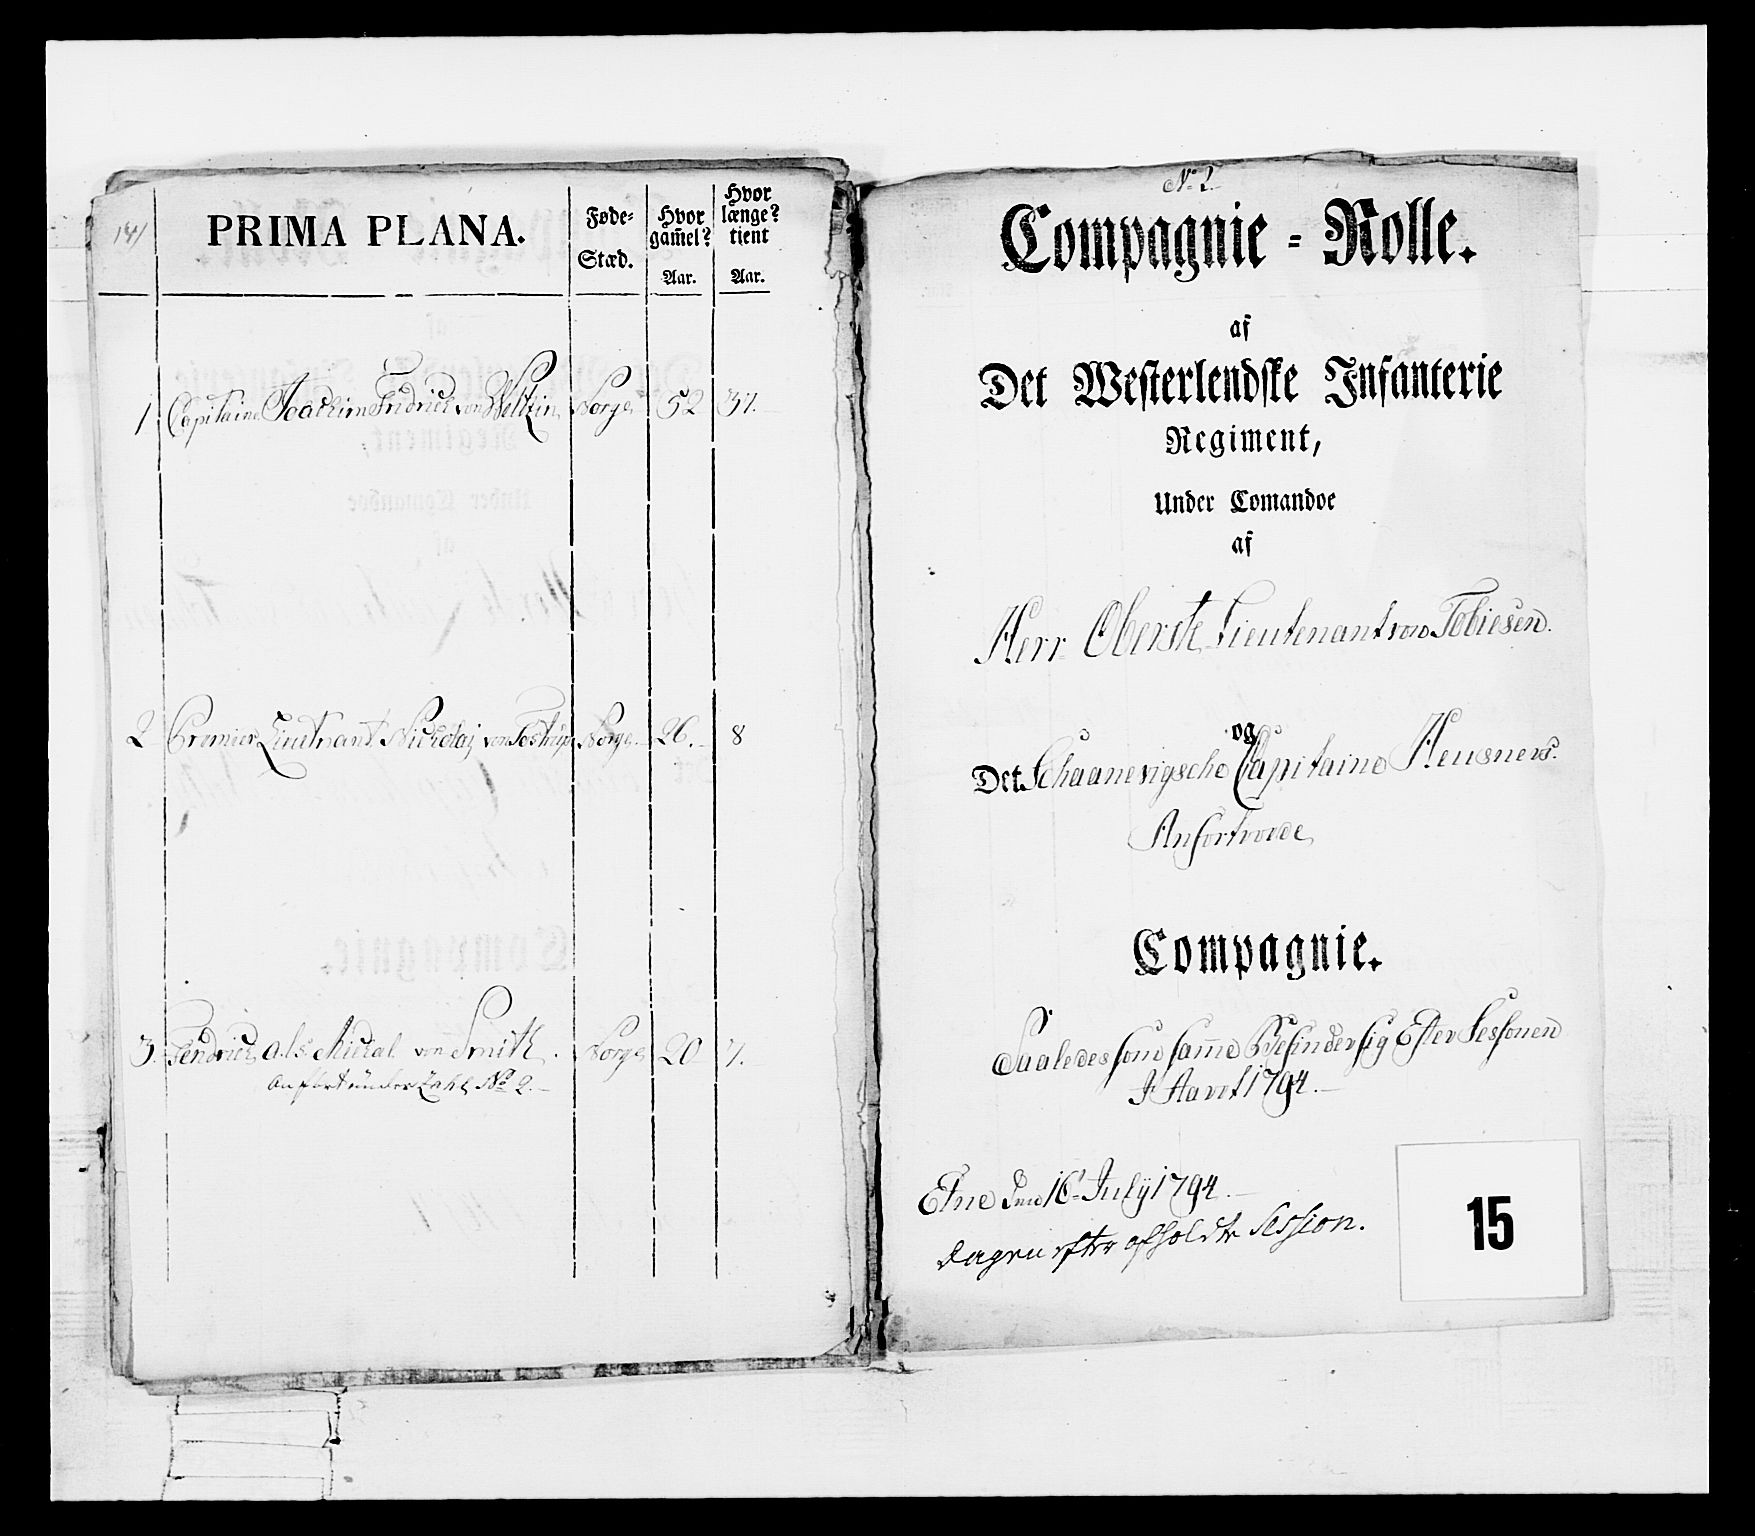 141
PRIMA PLANA.
Føde=
Stæd.
Hvor
gam̄el?
Aar.
Hvor
længe?
tient
Aar.
1 Capitaine Joachim Fridrich von Weltzin Norge 52 37.
2 Premier Lieutnant Nickolaj von Tostrup Norge 26. 8
3. Fendrich, a.l.s. Mickal von Smith. Norge 20 7.
anført under Zahl No 2.
No 2.
Compagnie = Rolle.
af
Det Westerlendske Infanterie
Regiment,
Under Comandoe
af
Herr Oberste Lieutenant von Tobiesen.
og
Det Schaanevigsche Capitaine Heusners.
Anfortroede
Compagnie.
Saaledes som sam̄e Befinder sig Efter Sessonen
I Aaret 1794.
Etne Den 16' July 1794.
dagen efter afholdte Session.
15